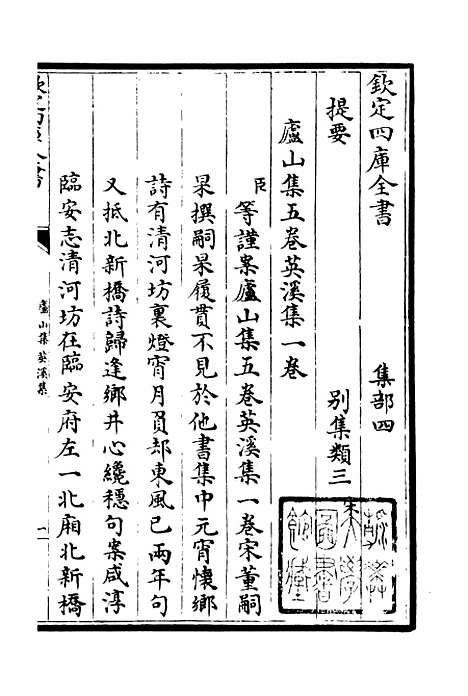 欽定四庫全書 集部四
提要 別集類三 宋
廬山集五卷英溪集一卷
臣等謹案廬山集五卷英溪集一卷宋董嗣
杲撰嗣杲履貫不見於他書集中元宵懷鄉
詩有清河坊裏燈宵月負却東風已兩年句
又抵北新橋詩歸逢鄉井心纔穩句案咸淳
臨安志清河坊在臨安府左一北廂北新橋
欽定四庫全書
廬山集英溪集
一